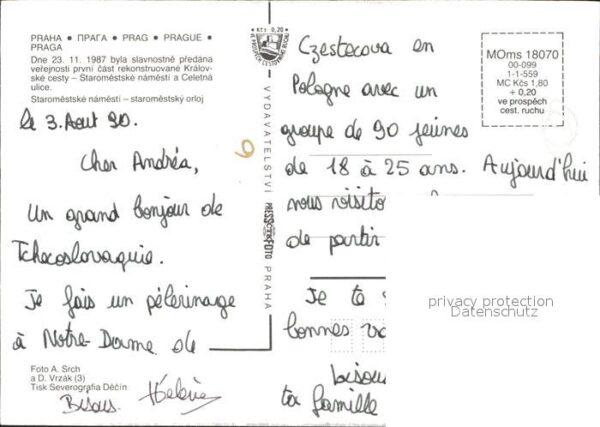 PRAHA • ПРАГА • PRAG • PRAGUE •
PRAGA
Dne 23. 11. 1987 byla slavnostně předána
veřejnosti první část rekonstruované Králov-
ské cesty – Staroměstské náměstí a Celetná
ulice.
Staroměstské náměstí – staroměstský orloj
le 3. Aout 90.
Cher Andréa,
Un grand bonjour de
Tchecoslovaquie.
Je fais un pélerinage
à Notre-Dame de
Foto A. Srch
a D. Vrzák (3)
Tisk Severografia Děčín
Bisous. Hélène
6
Kčs 0,20
VE PROSPĚCH CESTOVNÍHO RUCHU
VYDAVATELSTVÍ PRESSFOTO PRAHA
Czestecova en
Pologne avec un
groupe de 90 jeunes
de 18 à 25 ans. Aujourd'hui
nous
de partir
Je te
bonnes
bisou
ta famille
MOms 18070
00-099
1-1-559
MC Kčs 1,80
+ 0,20
ve prospěch
cest. ruchu
privacy protection
Datenschutz